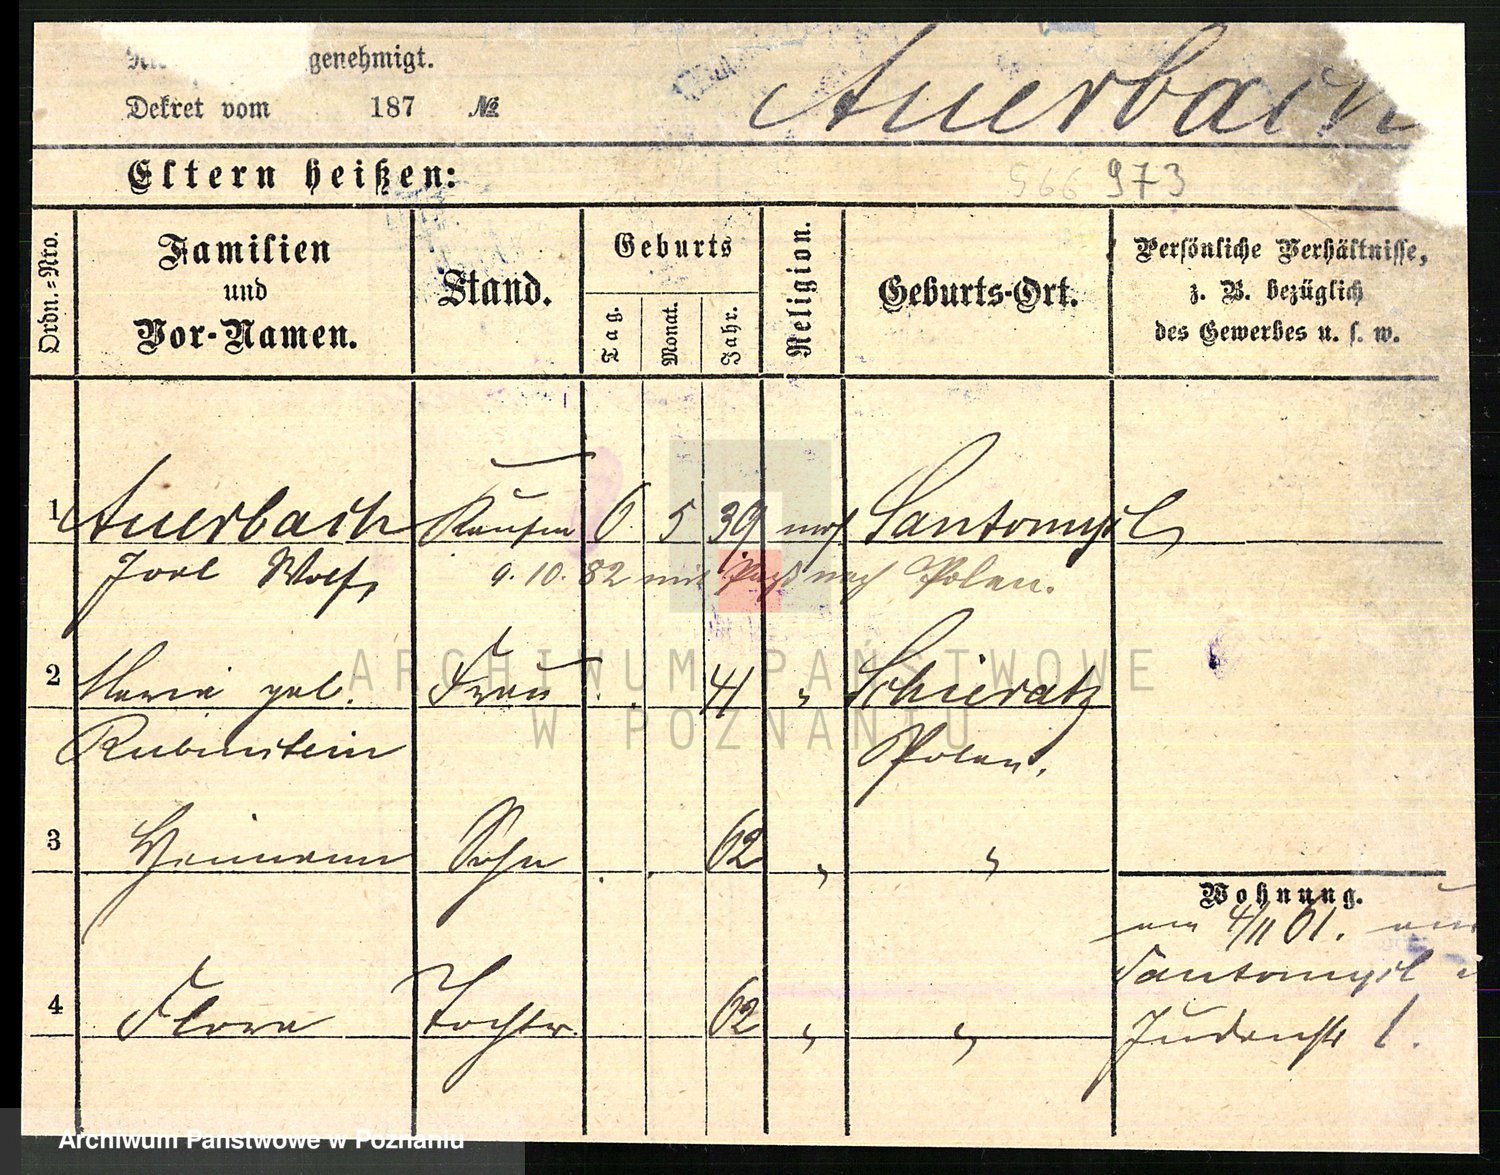 genehmigt.
Auerbach
Dekret vom 187 №
Eltern heißen:
566 973
Ordn.-Nro.
Familien
und
Vor-Namen.
Stand.
Geburts
Tag.
Monat.
Jahr.
Religion.
Geburts-Ort.
Persönliche Verhältnisse,
z. B. bezüglich
des Gewerbes u. s. w.
1 Auerbach Kaufm 6. 5 39 mos Santomysl
Joel Wolf, 9.10.82 mit Paß nach Polen.
2 Maria geb. Frau 41 " Schieratz
Rubinstein Polen.
3 Heimann Sohn 62 " "
Wohnung.
4/11 61.
Santomysl
4 Flora Tochter. 62 " "
Judenstr 1.
ARCHIWUM PAŃSTWOWE
W POZNANIU
Archiwum Państwowe w Poznaniu